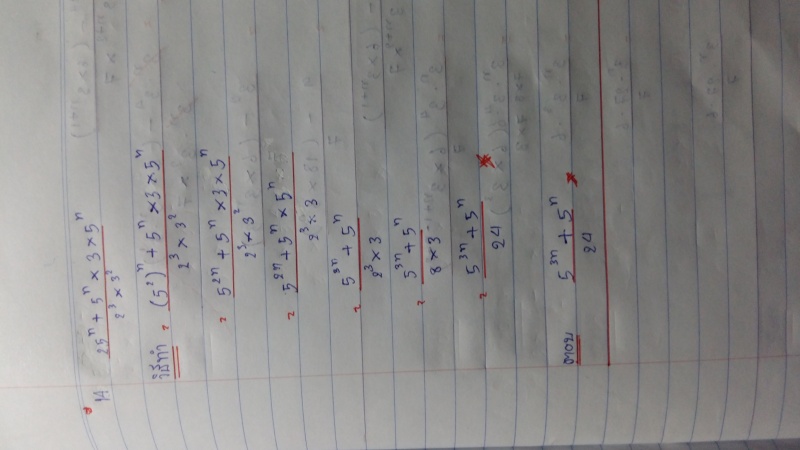 14 25ⁿ + 5ⁿ × 3 × 5ⁿ / 2³ × 3²
วิธีทำ = (5²)ⁿ + 5ⁿ × 3 × 5ⁿ / 2³ × 3²
= 5²ⁿ + 5ⁿ × 3 × 5ⁿ / 2³ × 3²
= 5²ⁿ + 5ⁿ × 5ⁿ / 2³ × 3
= 5³ⁿ + 5ⁿ / 2³ × 3
= 5³ⁿ + 5ⁿ / 8 × 3
= 5³ⁿ + 5ⁿ / 24
ตอบ 5³ⁿ + 5ⁿ / 24